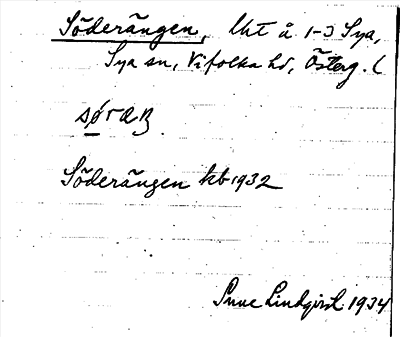 Söderängen, Uht å 1-3 Sya,
Sya sn, Vifolka hd, Österg. l
Söderängen kb 1932
Sune Lindqvist 1934